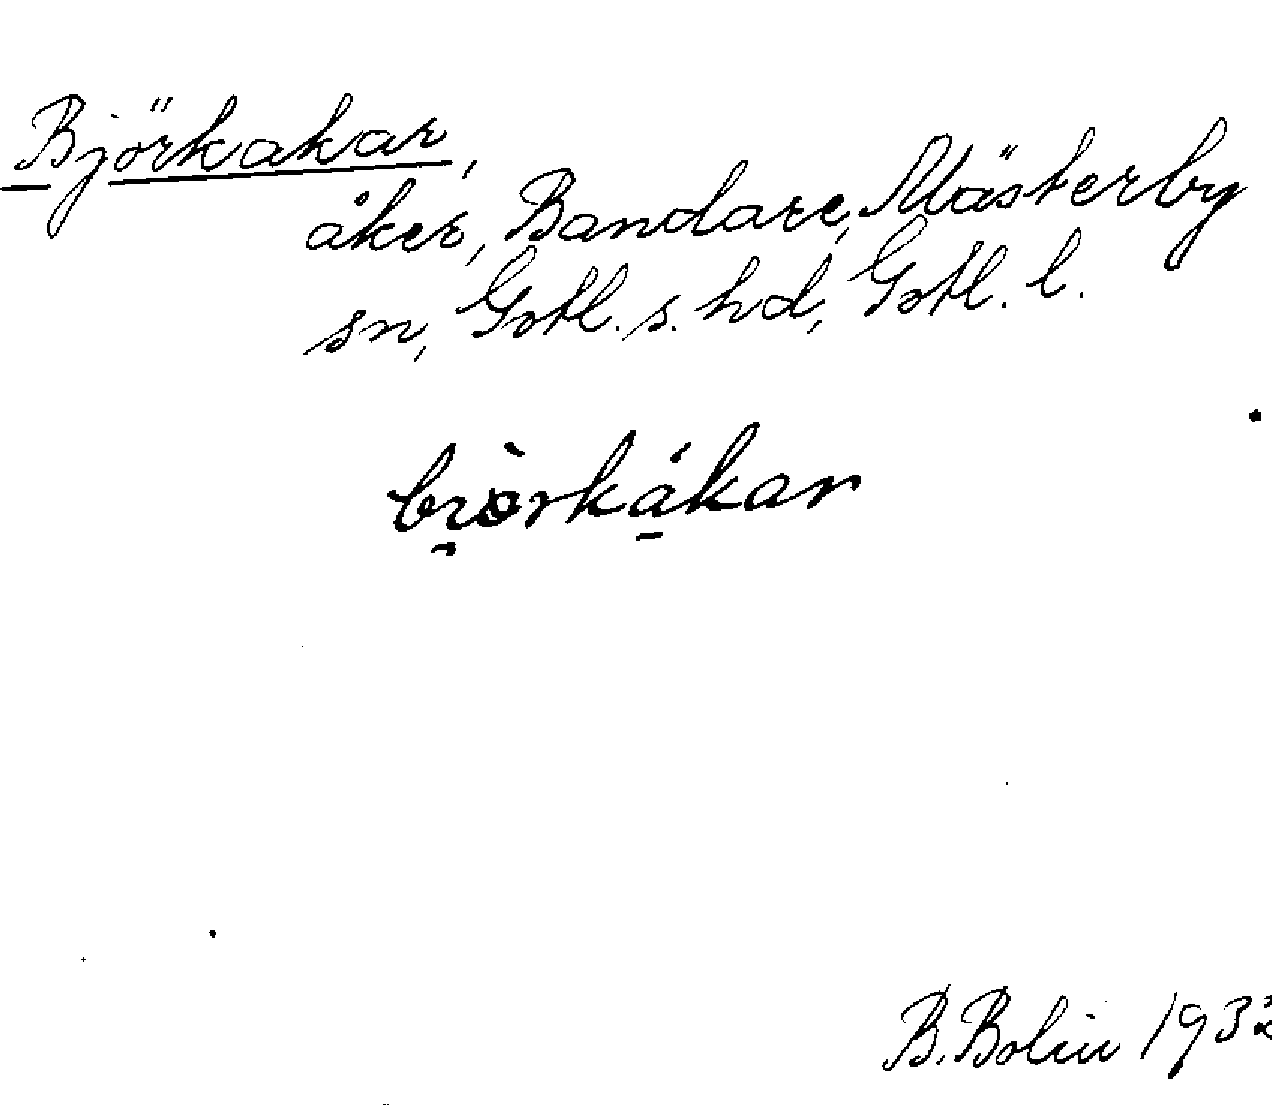 Björkakar,
åker, Bandare, Mästerby
sn, Gotl. s. hd, Gotl. l.
B. Bolin 1932